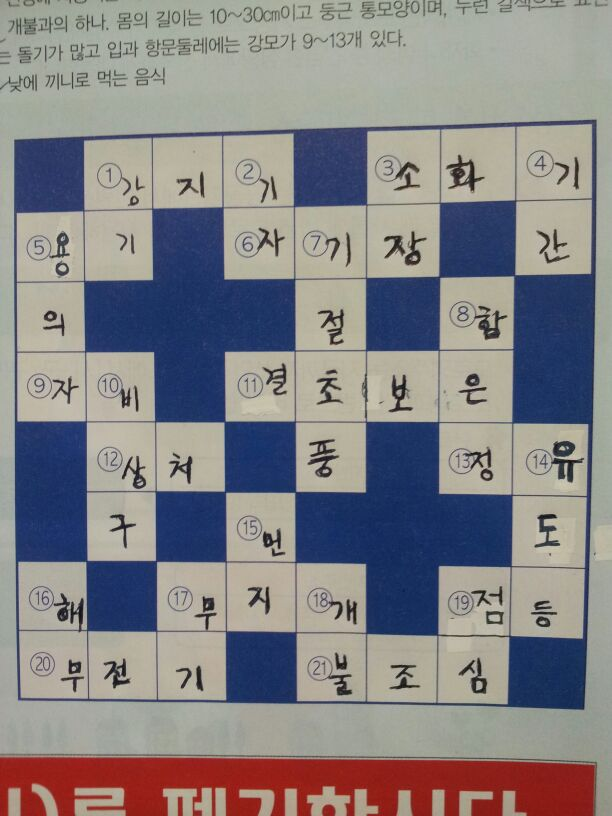 개불과의 하나. 몸의 길이는 10~30㎝이고 둥근 통모양이며, 누런 갈색으로
는 돌기가 많고 입과 항문둘레에는 강모가 9~13개 있다.
낮에 끼니로 먹는 음식
①강 지 ②기 ③소 화 ④기
⑤용 기 ⑥자 ⑦기 장 간
의 절 ⑧함
⑨자 ⑩비 ⑪결 초 보 은
⑫상 처 풍 ⑬정 ⑭유
구 ⑮먼 도
⑯해 ⑰무 지 ⑱개 ⑲점 등
⑳무 전 기 ㉑불 조 심
를 폐기합시다